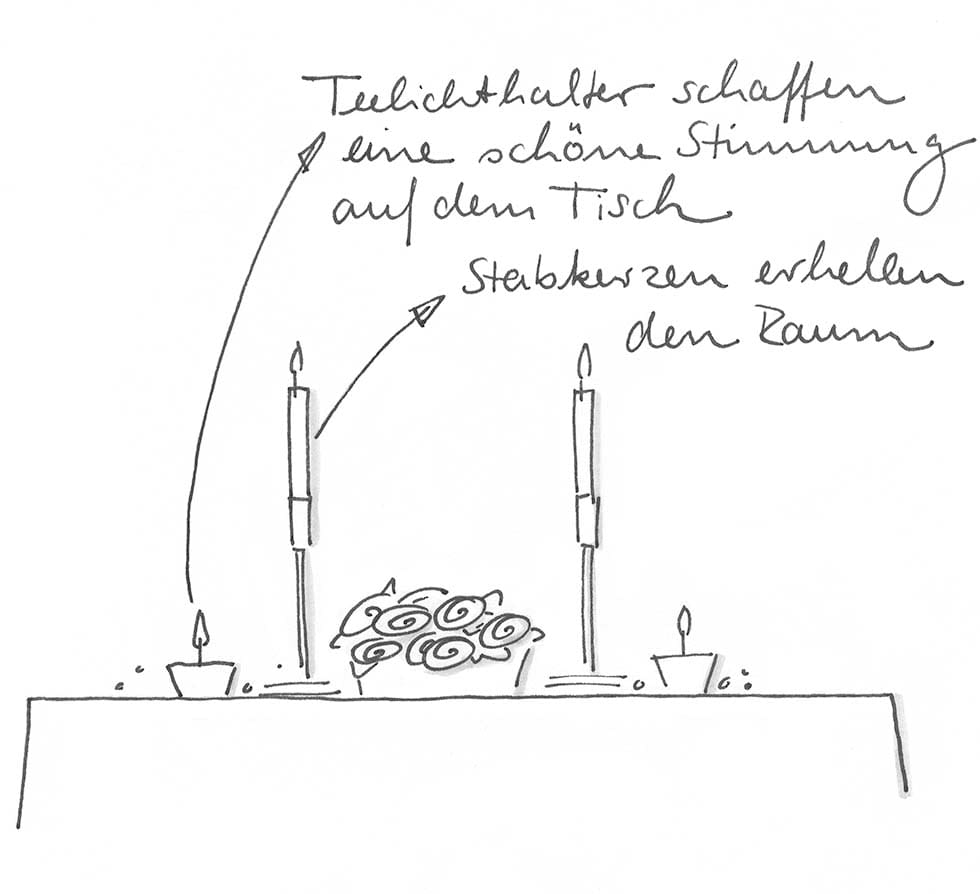 Teelichthalter schaffen
eine schöne Stimmung
auf dem Tisch
Stabkerzen erhellen
den Raum